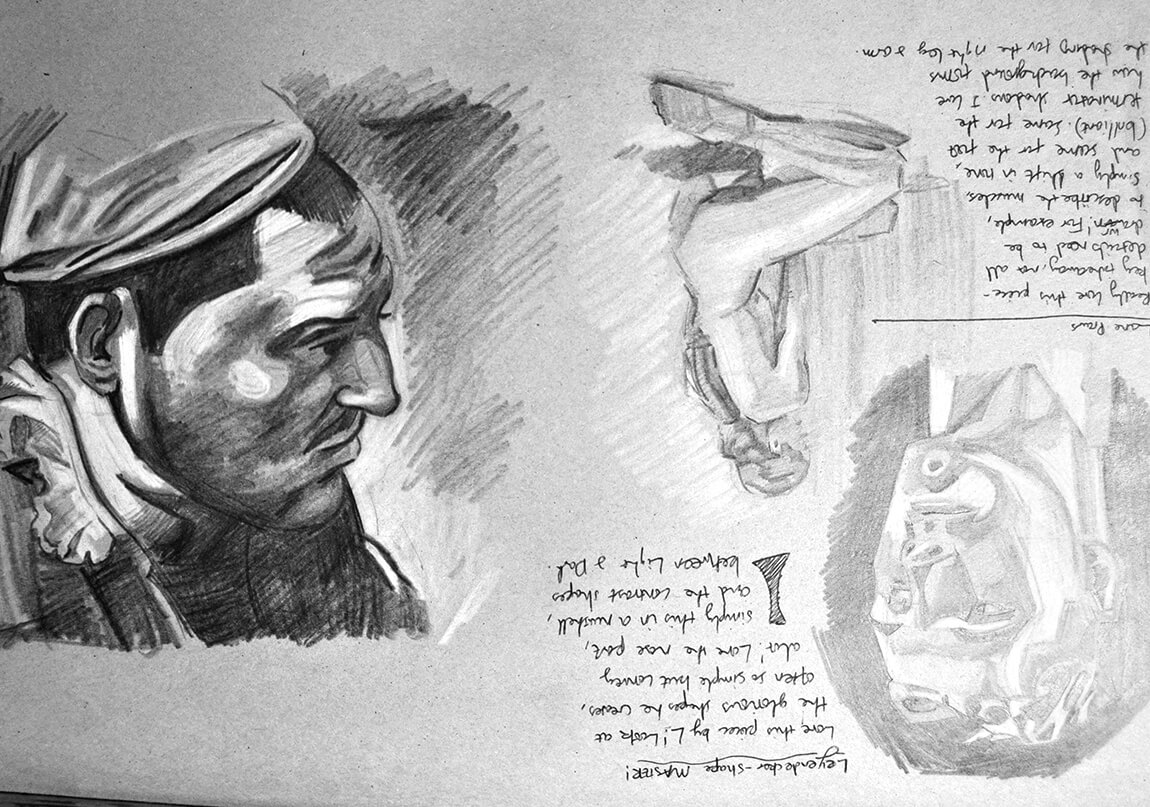 Leyendecker - shape MASTER!
Love this piece by L! Look at
the glorious shapes he creates,
often so simple but convey
alot! Love the nose part,
simply this in a nutshell,
and the contrast shapes
between Light & Dark.
Really love this piece -
key takeaway, not all
details need to be
drawn! For example,
to describe the muscles,
simply a shift in tone,
and same for the foot
(brilliant). Same for the
terminator shadows. I love
how the background forms
the shading for the right leg & arm.